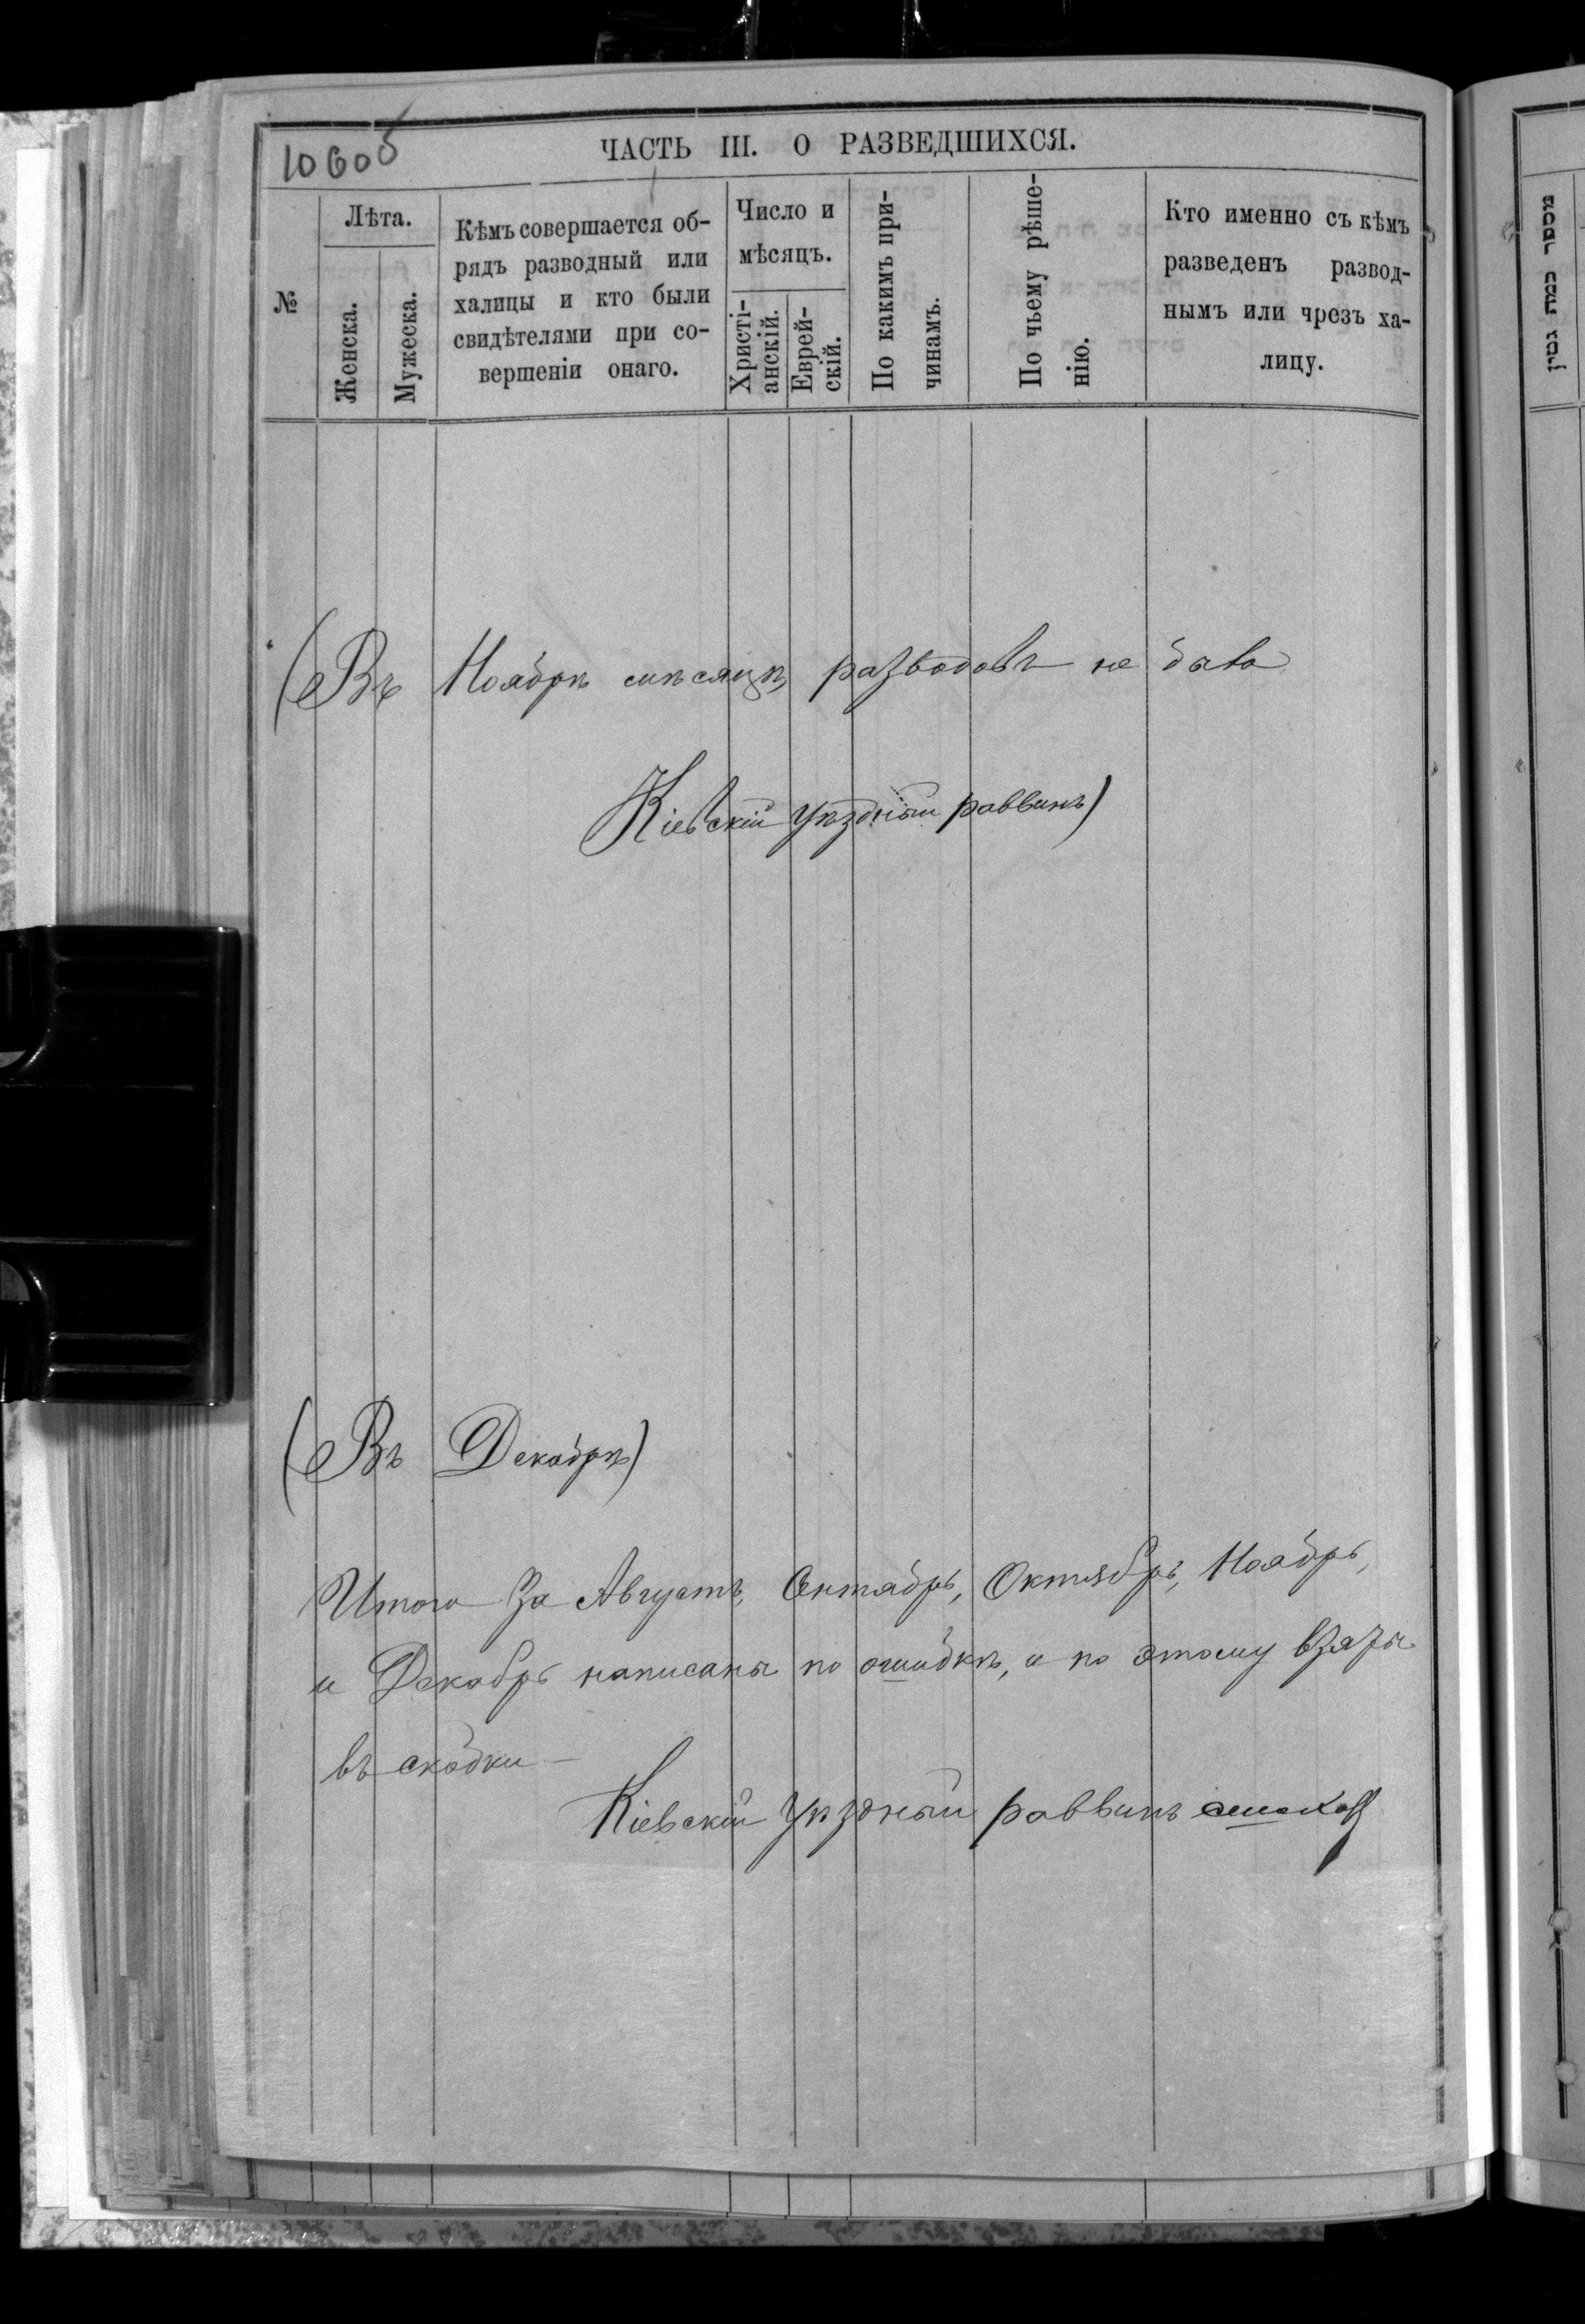 1060об
ЧАСТЬ III. О РАЗВЕДШИХСЯ.
№
Лѣта.
Женска.
Мужеска.
Кѣмъ совершается об-
рядъ разводный или
халицы и кто были
свидѣтелями при со-
вершеніи онаго.
Число и
мѣсяцъ.
Христі-
анскій.
Еврей-
скій.
По какимъ при-
чинамъ.
По чьему рѣше-
нію.
Кто именно съ кѣмъ
разведенъ развод-
нымъ или чрезъ ха-
лицу.
(Въ Ноябрѣ мѣсяцѣ разводовъ не было
Кіевскій Уѣздный раввинъ)
(Въ Декабрѣ)
Итого За Августъ, Сентябрь, Октябрь, Ноябрь,
и Декабрь написаны по ошибкѣ, и по этому взяты
въ скобки —
Кіевскій Уѣздный раввинъ
מספר כמה גטין